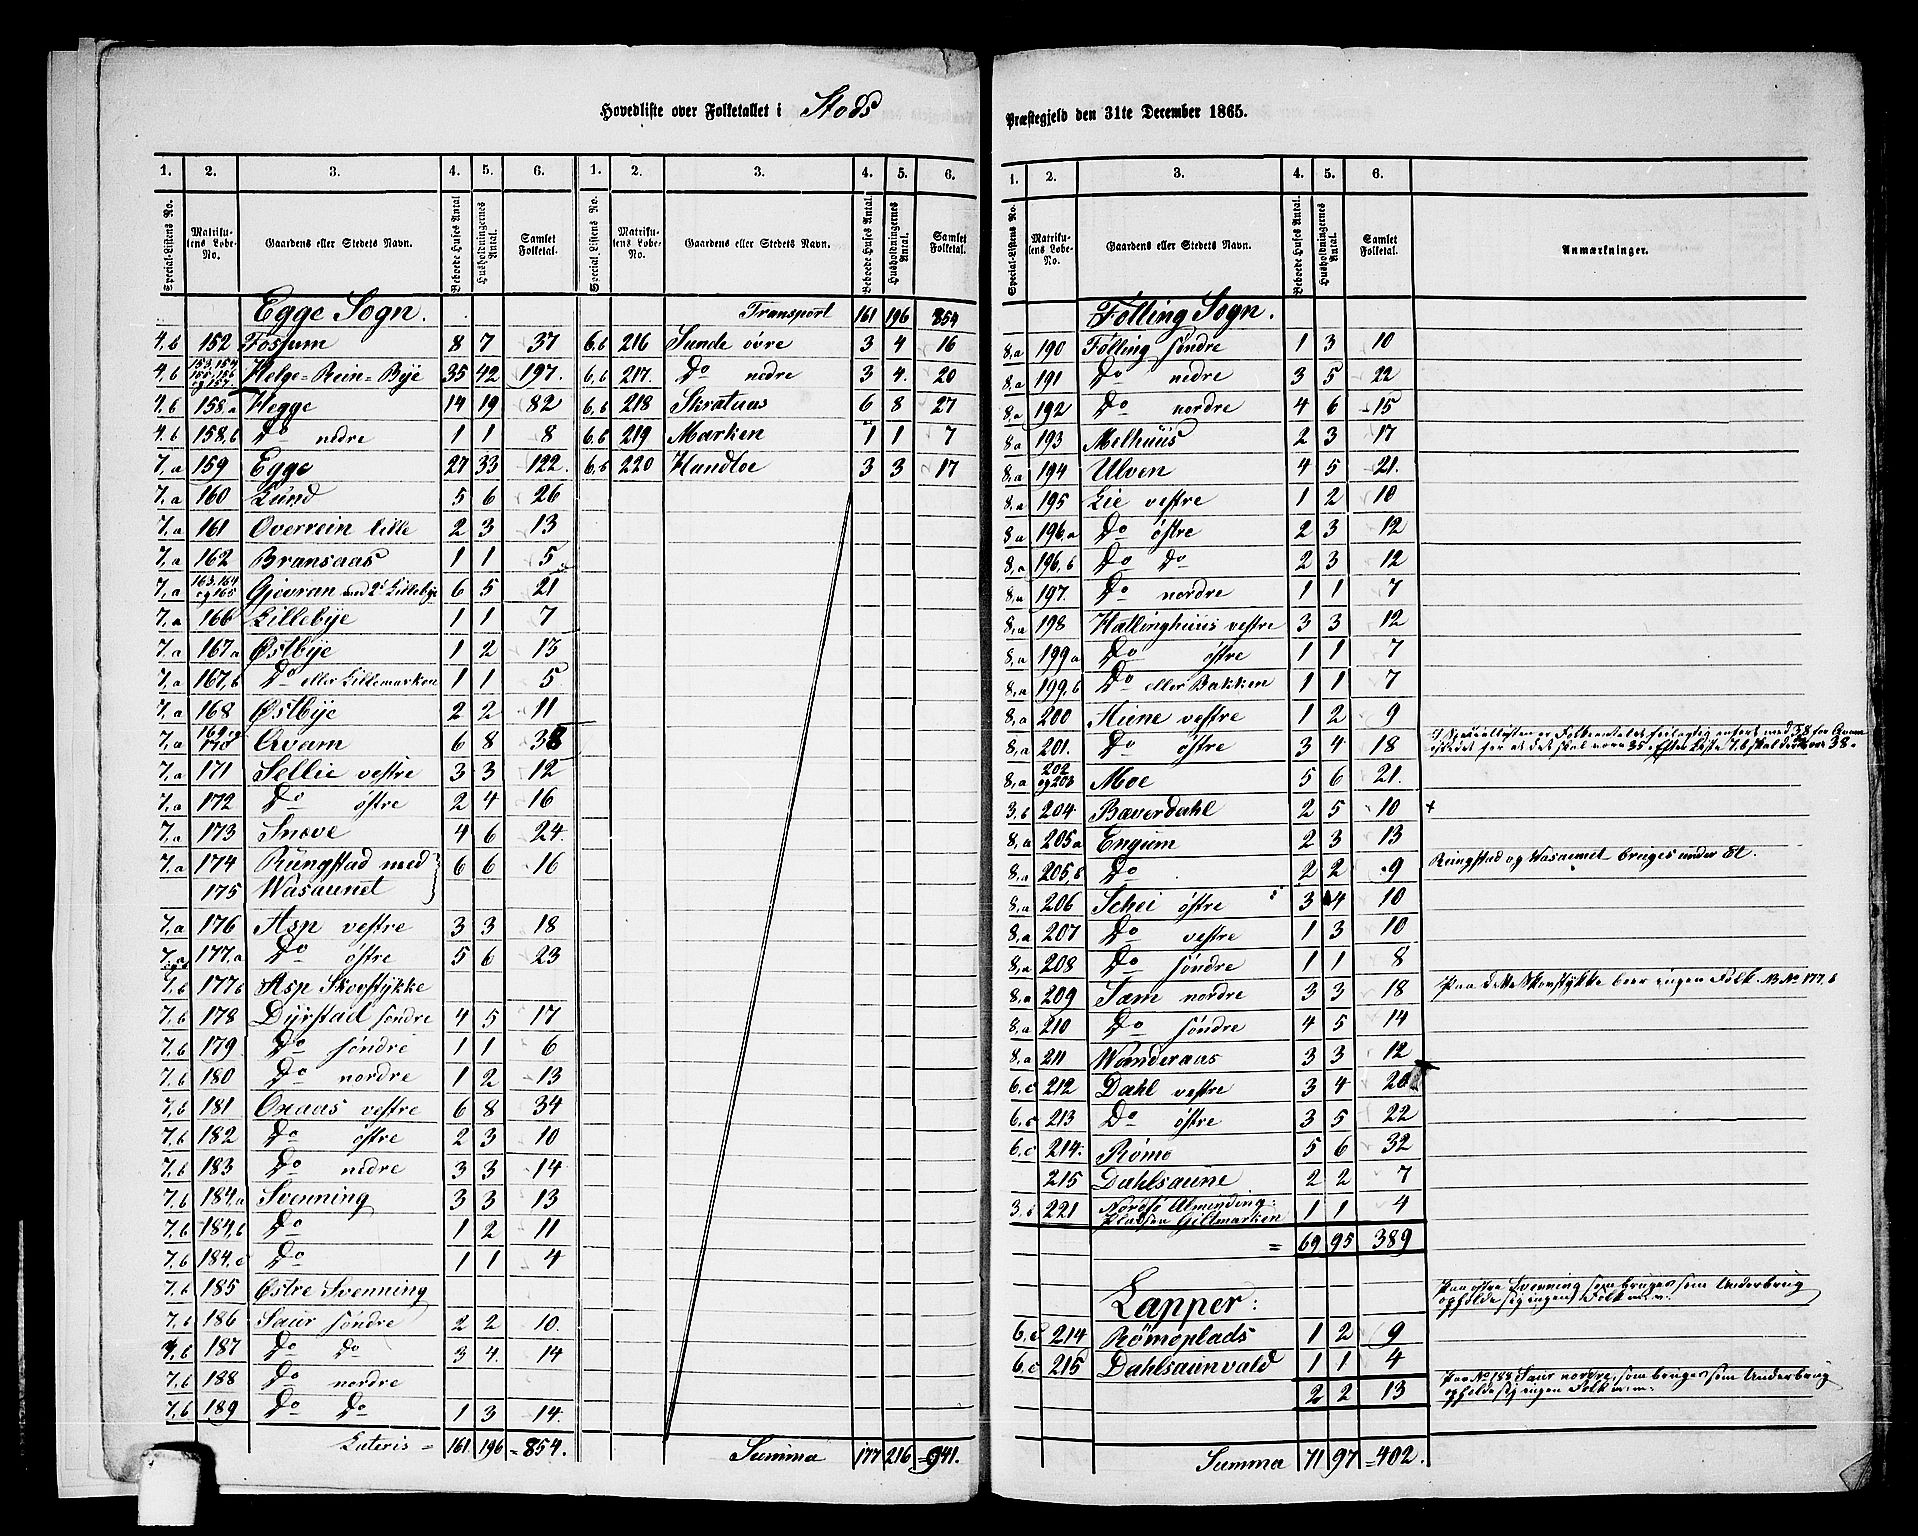 Hovedliste over Folketallet i Stods Præstegjeld den 31te December 1865.
1. 2. 3. 4. 5. 6. 1. 2. 3. 4. 5. 6.
Special-Listens No. Matrikulens Løbe-No. Gaardens eller Stedets Navn. Beboede Huses Antal Husholdningernes Antal. Samlet Folketal. Special Listens No. Matrikulens Løbe-No. Gaardens eller Stedets Navn. Beboede Huses Antal. Husholdningernes Antal. Samlet Folketal.
Egge Sogn. Transport 161 196 854
4,b 152 Fossum 8 7 37 6,b 216 Sunde øvre 3 4 16
4,b 153,154 155,156 og 157 Helge-Rein-Bye 35 42 197. 6,b 217. Do nedre 3 4. 20
4,b 158.a Hegge 14 19 82 6,b 218 Skrataas 6 8 27
4,b 158,b Do nedre 1 1 8 6,b 219 Marken 1 1 7
7,a 159 Egge 27 33 122. 6,b 220 Handloe 3 3 17
7,a 160 Lund 5 6 26
7,a 161 Overrein lille 2 3 13
7,a 162 Bransaas 1 1 5
7,a 163,164 og 165 Gjævran med 2de Lillebye 6 5 21
7,a 166 Lillebye 1 1 7
7,a 167a Østbye 1 2 13
7,a 167,b Do eller Lillemarken 1 1 5
7,a 168 Østbye 2 2 11
7,a 169 og 170 Qvam 6 8 38
7,a 171 Sellie vestre 3 3 12
7,a 172 Do østre 2 4 16
7,a 173 Snøve 4 6 24.
7,a 174 Rungstad med 6 6 16
175 Wasaunet
7,a 176 Asp vestre 3 3 18
7,a 177.a Do østre 5 6 23
7,b 177b Asp Skovstykke
7,b 178 Dyrstad søndre 4 5 17
7,b 179 Do søndre 1 1 6
7,b 180 Do nordre 1 2 13
7,b 181 Onaas vestre 6 8 34
7,b 182 Do østre 2 3 10
7,b 183 Do nedre 3 3 14
7,b 184.a Svenning 3 3 13
7,b 184,b Do 1 2 11
7,b 184.c Do 1 1 4
7,b 185 Østre Svenning
7,b 186 Saur søndre 2 2 10.
7,b 187 Do Do 3 4. 14
7,b 188 Do nordre
7,b 189 Do Do 1 3 14.
Lateris = 161 196 = 854. Summa 177 216 = 941.
1. 2. 3. 4. 5. 6.
Special-Listens No. Matrikulens Løbe-No. Gaardens eller Stedets Navn. Beboede Huses Antal. Husholdningernes Antal. Samlet Folketal. Anmærkninger.
Følling Sogn.
8,a 190 Følling søndre 1 3 10
8,a 191 Do nedre 3 5 22
8,a 192 Do nordre 4 6 15
8,a 193 Melhuus 2 3 17
8,a 194 Ulven 4 5 21.
8,a 195 Lie vestre 1 2 10
8,a 196,a Do østre 2 3 12
8,a 196,b Do Do 2 3 12
8,a 197. Do nordre 1 1 7
8,a 198 Hallinghuus vestre 3 3 12
8,a 199a Do østre 1 1 7
8,a 199,b Do eller Bakken 1 1 7
8,a 200 Aune vestre 1 2 9
8,a 201. Do østre 3 4 18
8,a 202 og 203 Moe 5 6 21.
3,b 204 Bæverdahl 2 5 10 +
8,a 205a Engum 2 3 13
8,a 205,b Do 2 2 9 Rungstad og Wasaunet bruges under Et.
8,a 206 Schei østre 3 4 10
8,a 207 Do vestre 1 3 10
8,a 208 Do søndre 1 1 8
8,a 209 Tæm nordre 3 3 18 Paa dette Skovstykke boer ingen Folk. N No 177.b
8,a 210 Do søndre 4 5 14
8,a 211 Wanderaas 3 3 12
6,c 212 Dahl vestre 3 4 20
6,c 213 Do østre 3 5 22
6,c 214. Rømo 5 6 32
215 Dahlsaune 2 2 7
3,b 221 Nordfø Almending: Pladsen Giltmarken 1 1 4
= 69 95 389
Paa østre Svenning som bruges som Underbrug
opholde sig ingen Folk
Lapper:
6,c 214 Rømoplads 1 2 9
6,c 215 Dahlsaunvald 1 1 4
2 2 13
Paa No 188 Saur nordre, som bruges som Underbrug
opholde sig ingen Folk
Summa 71 97 = 402.